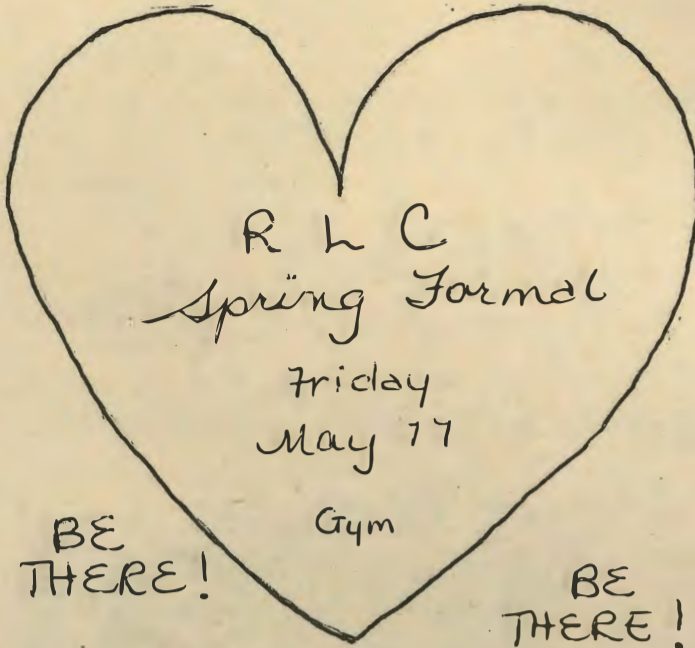 R L C
Spring Formal
Friday
May 17
Gym
BE
THERE!
BE
THERE!